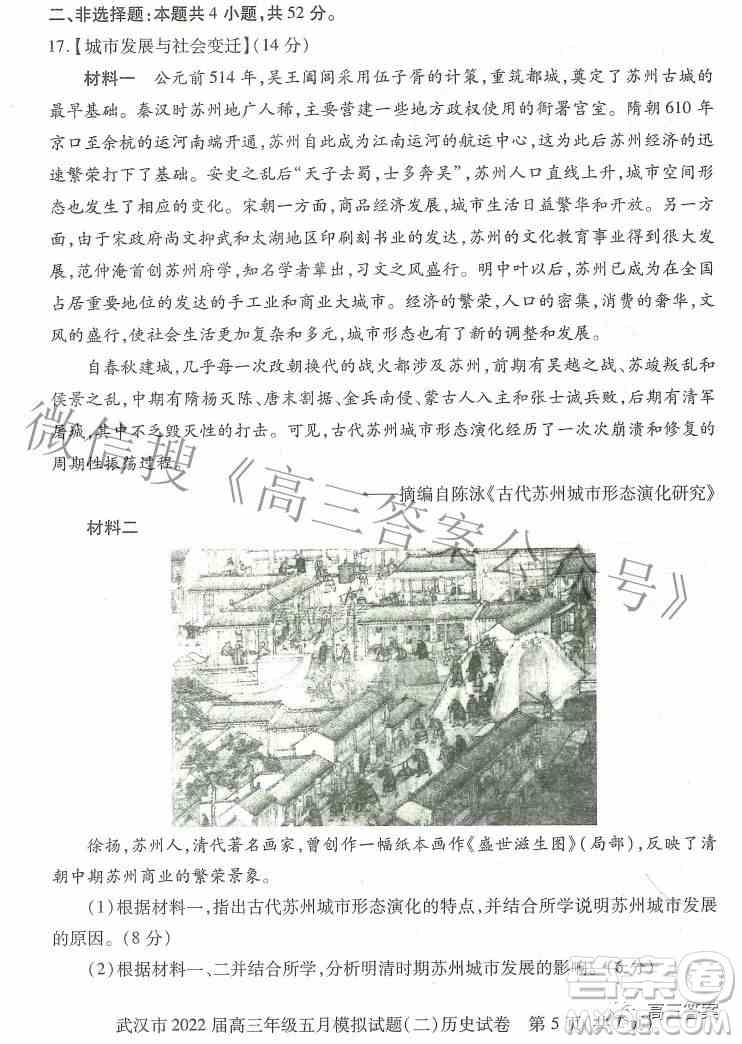 二、非选择题：本题共 4 小题，共 52 分。
17.【城市发展与社会变迁】(14 分)
材料一　公元前 514 年，吴王阖闾采用伍子胥的计策，重筑都城，奠定了苏州古城的
最早基础。秦汉时苏州地广人稀，修建一些地方政权使用的衙署宫室。隋朝 610 年
京口至余杭的运河南端开通，苏州成为江南运河的航运中心，这为此后苏州经济的迅
速繁荣打下了基础。安史之乱后“天子去蜀，士多奔吴”，苏州人口直线上升，城市空间形
态也发生了相应的变化。宋朝一方面，商品经济发展，城市生活日益繁华和开放。另一方
面，由于宋政府尚文抑武和太湖地区印刷刻书业的发达，苏州的文化教育事业得到很大发
展，范仲淹首创苏州府学，知名学者辈出，习文之风盛行。明中叶以后，苏州已成为在全国
占居重要地位的发达的手工业和商业大城市。经济的繁荣，人口的密集，消费的奢华，文
风的盛行，使社会生活更加复杂和多元，城市形态也有了新的调整和发展。
自春秋建城，几乎每一次改朝换代的战火都涉及苏州，前期有吴越之战、苏峻叛乱和
侯景之乱，中期有隋杨灭陈、唐末割据、金兵南侵、蒙古人入主和张士诚兵败，后期有清军
屠城，其中不乏毁灭性的打击。可见，古代苏州城市形态演化经历了一次次崩溃和修复的
周期性振荡过程。
——摘编自陈泳《古代苏州城市形态演化研究》
材料二
徐扬，苏州人，清代著名画家，曾创作一幅纸本画作《盛世滋生图》(局部)，反映了清
朝中期苏州商业的繁荣景象。
(1)根据材料一，指出古代苏州城市形态演化的特点，并结合所学说明苏州城市发展
的原因。(8 分)
(2)根据材料一、二并结合所学，分析明清时期苏州城市发展的影响。(6 分)
武汉市 2022 届高三年级五月模拟试题(二)历史试卷　第 5 页 共
微信搜《高三答案公众号》
答案圈
高三答案